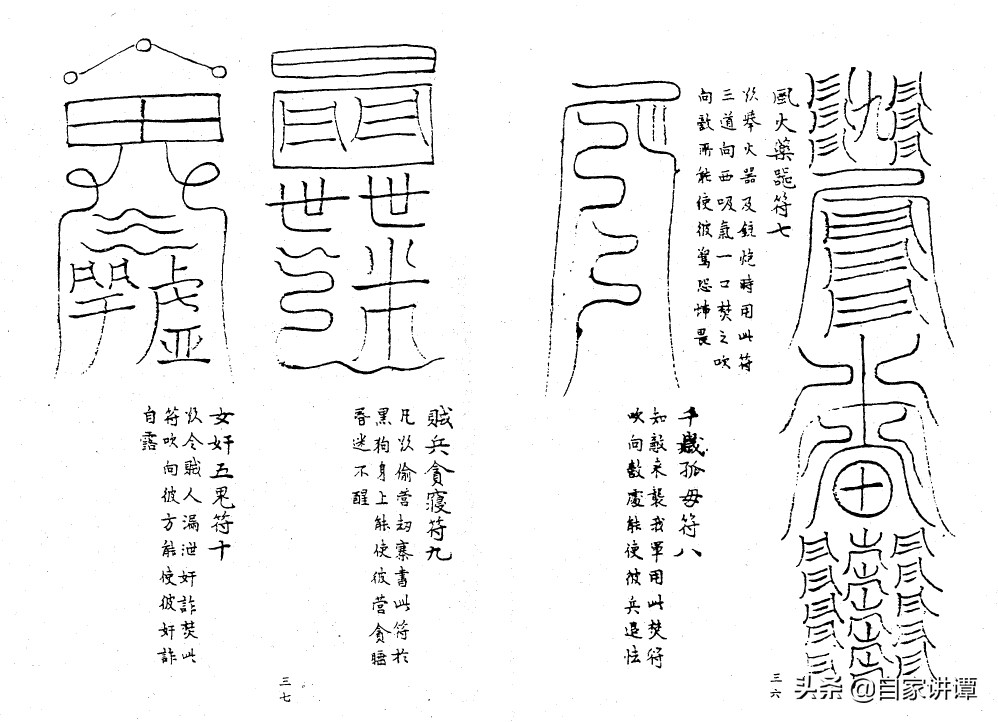 風火藥器符七
以舉火器及銃炮時用此符
三道向西吸氣一口焚之吹
向敵所能使彼驚恐怖畏
千歲孤母符八
知敵來襲我軍用此焚符
吹向敵處能使彼兵退怯
三六
賊兵貪寢符九
凡以偷營劫寨書此符於
黑狗身上能使彼營貪睡
昏迷不醒
女奸五鬼符十
以令賊人漏泄奸詐焚此
符吹向彼方能使彼奸詐
自露
三七
头条 @自家讲谭